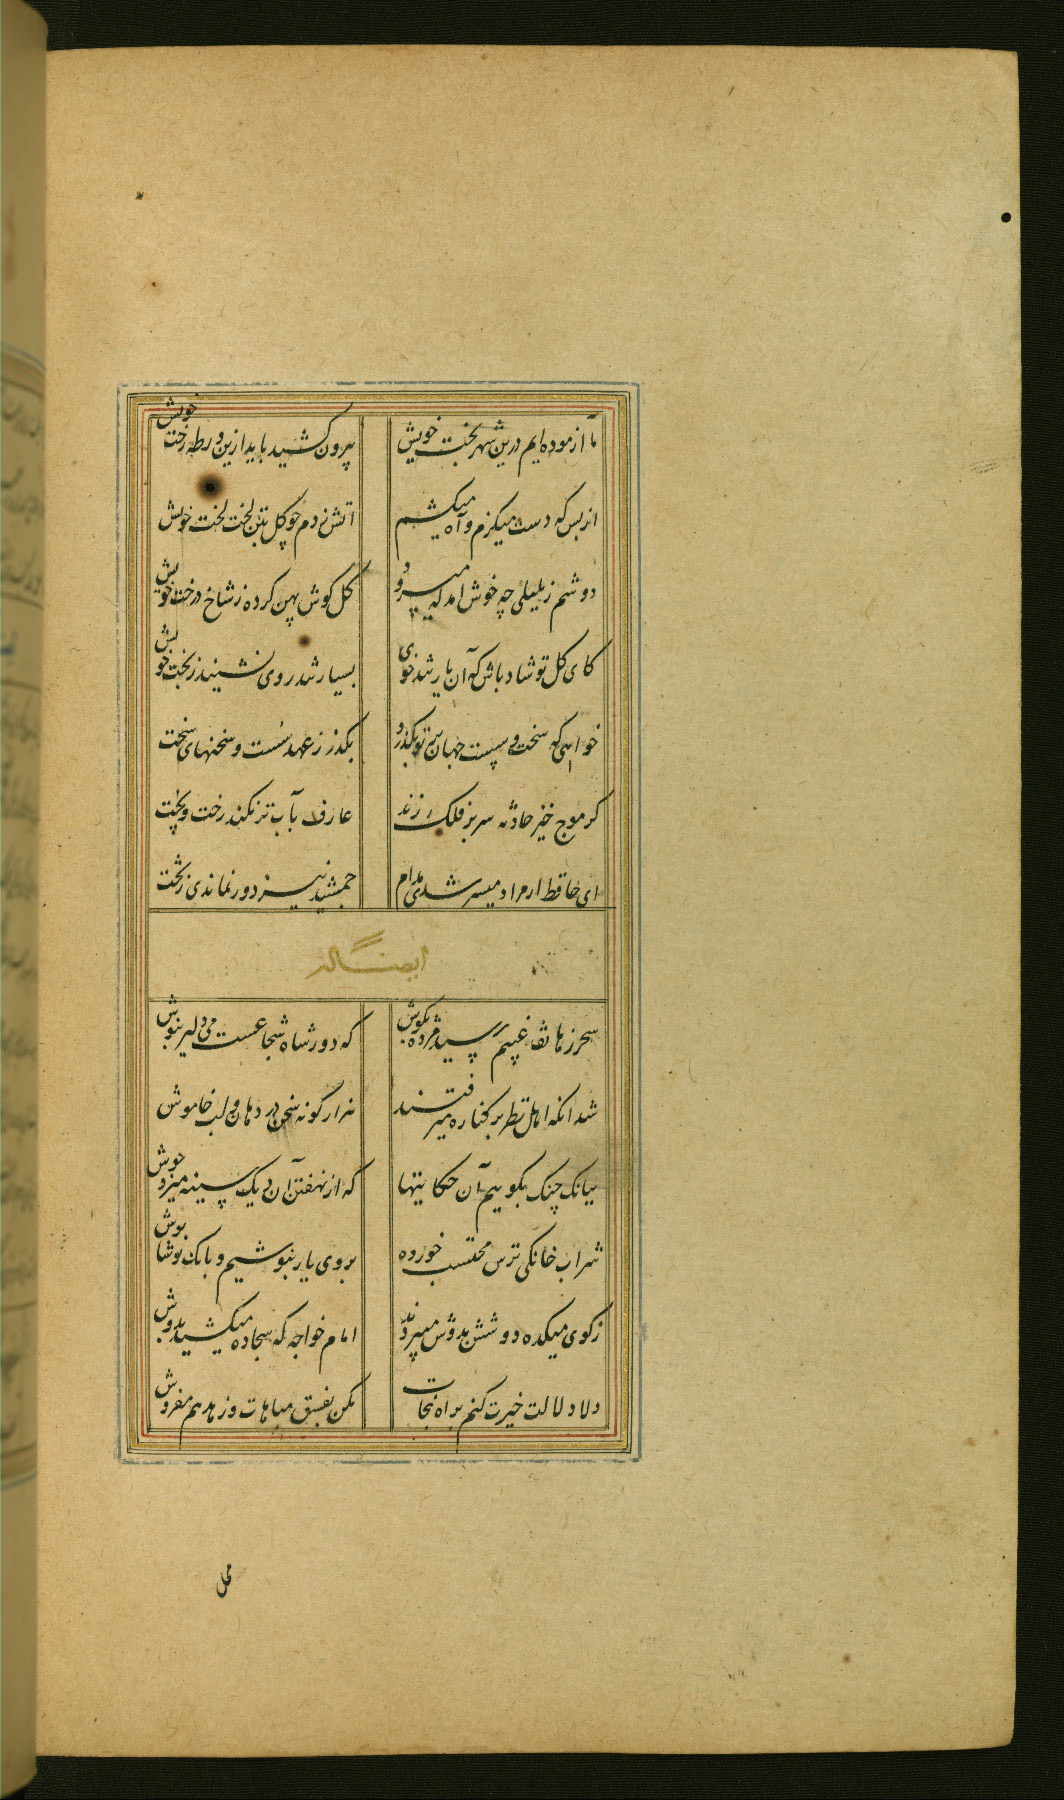 ما ازموده ایم درین شهر بخت خویش بیرون کشید باید ازین ورطه رخت خویش
از بس که دست میکزم و آه میکشم اتش زدم چو کل بتن لخت لخت خویش
دوشم ز بلبلی چه خوش امد که میسرود کل کوش پهن کرده ز شاخ درخت خویش
کای کل تو شاد باش که آن یار تند خوی بسیار تند روی نشیند ز بخت خویش
خواهی که سخت و سست جهان بر تو بکذرد بکذر ز عهد سست و سخنهای سخت
کر موج خیز حادثه سر بر فلک زند عارف بآب تر نکند رخت و پخت
ای حافظ ار مراد میسر شدی مدام جمشید نیز دور نماندی ز تخت
ایضا له
سحر ز هاتف غیبم رسید مژده بکوش که دور شاه شجاعست می دلیر بنوش
شد انکه اهل نظر بر کناره میرفتند هزار کونه سخن در دهان و لب خاموش
ببانک چنک بکوییم آن حکایتها که از نهفتن آن دیک سینه میزد جوش
شراب خانکی ترس محتسب خورده بروی یار بنوشیم و بانک نوشا نوش
ز کوی میکده دوشش بدوش میبردند امام خواجه که سجاده میکشید بدوش
دلا دلالت خیرت کنم براه نجات مکن بفسق مباهات و زهد هم مفروش
محل